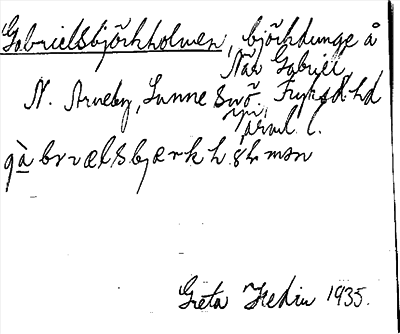 Gabrielsbjörkholmen, björkdunge å
När Gabriel,
N. Arneby, Sunne Fryksd. hd
Värml. l.
gà brɩælsbjærkhȯlmən
Greta Hedin 1935.